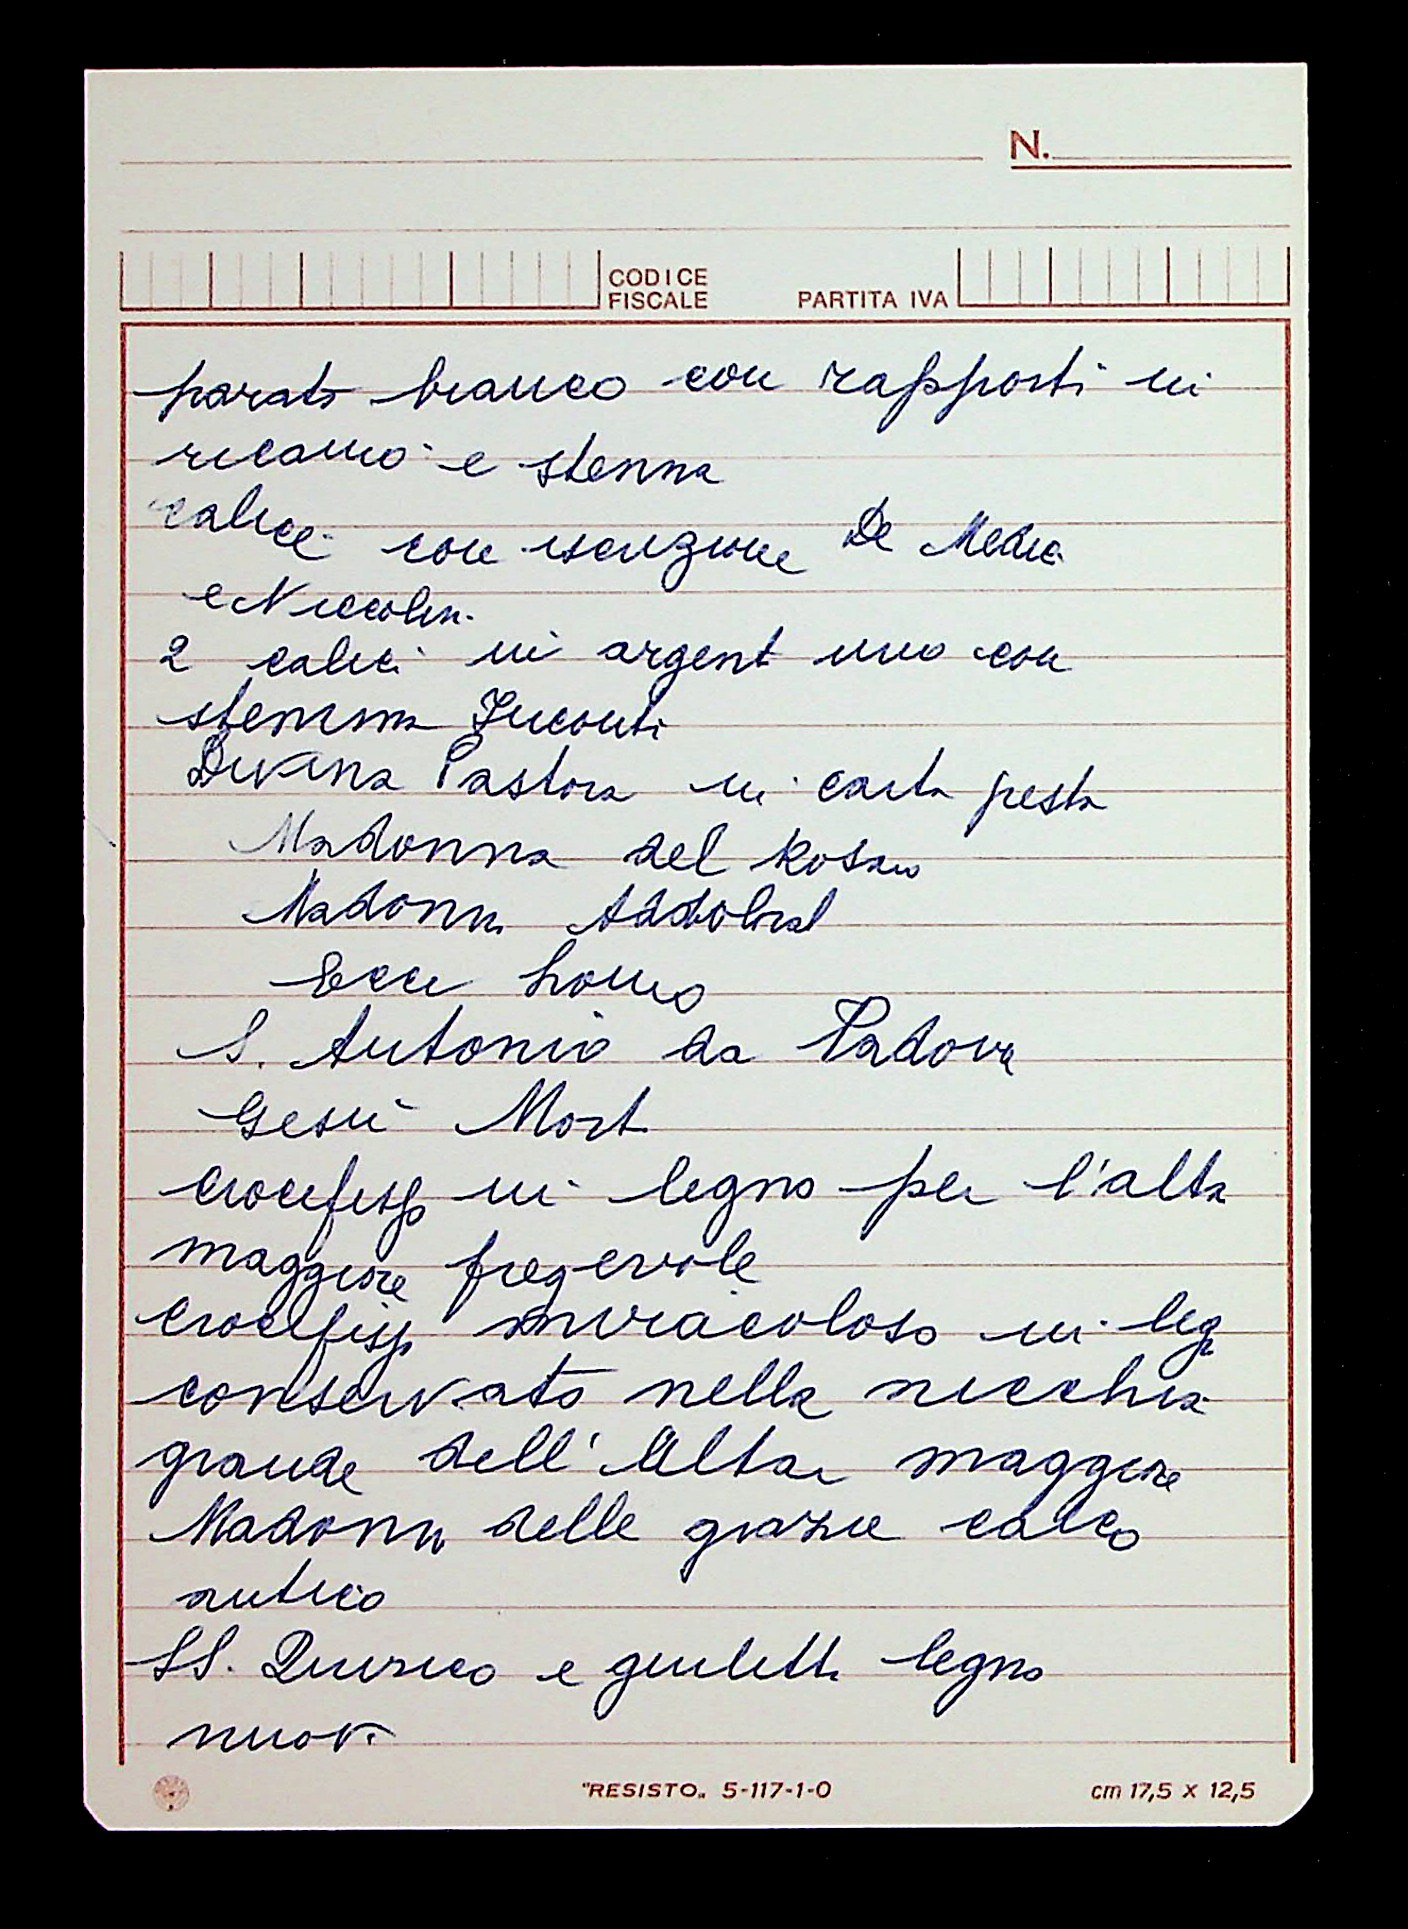 N.
CODICE
FISCALE PARTITA IVA
parato bianco con rapporti in
ricamo e stemma
calice con iscrizione De Medici
e Niccolin
2 calici in argent uno con
stemma Inconti
Divina Pastora in carta pesta
Madonna del Rosario
Madonna Addolorat
Ecce homo
S. Antonio da Padova
Gesù Mort
Crocefisso in legno per l'alta
maggiore pregevole
Crocefisso miracoloso in leg
conservato nella nicchia
grande dell'Altar maggiore
Madonna delle grazie calco
antico
SS. Quirico e giulitta legno
nuovi
"RESISTO„ 5-117-1-0 cm 17,5 x 12,5